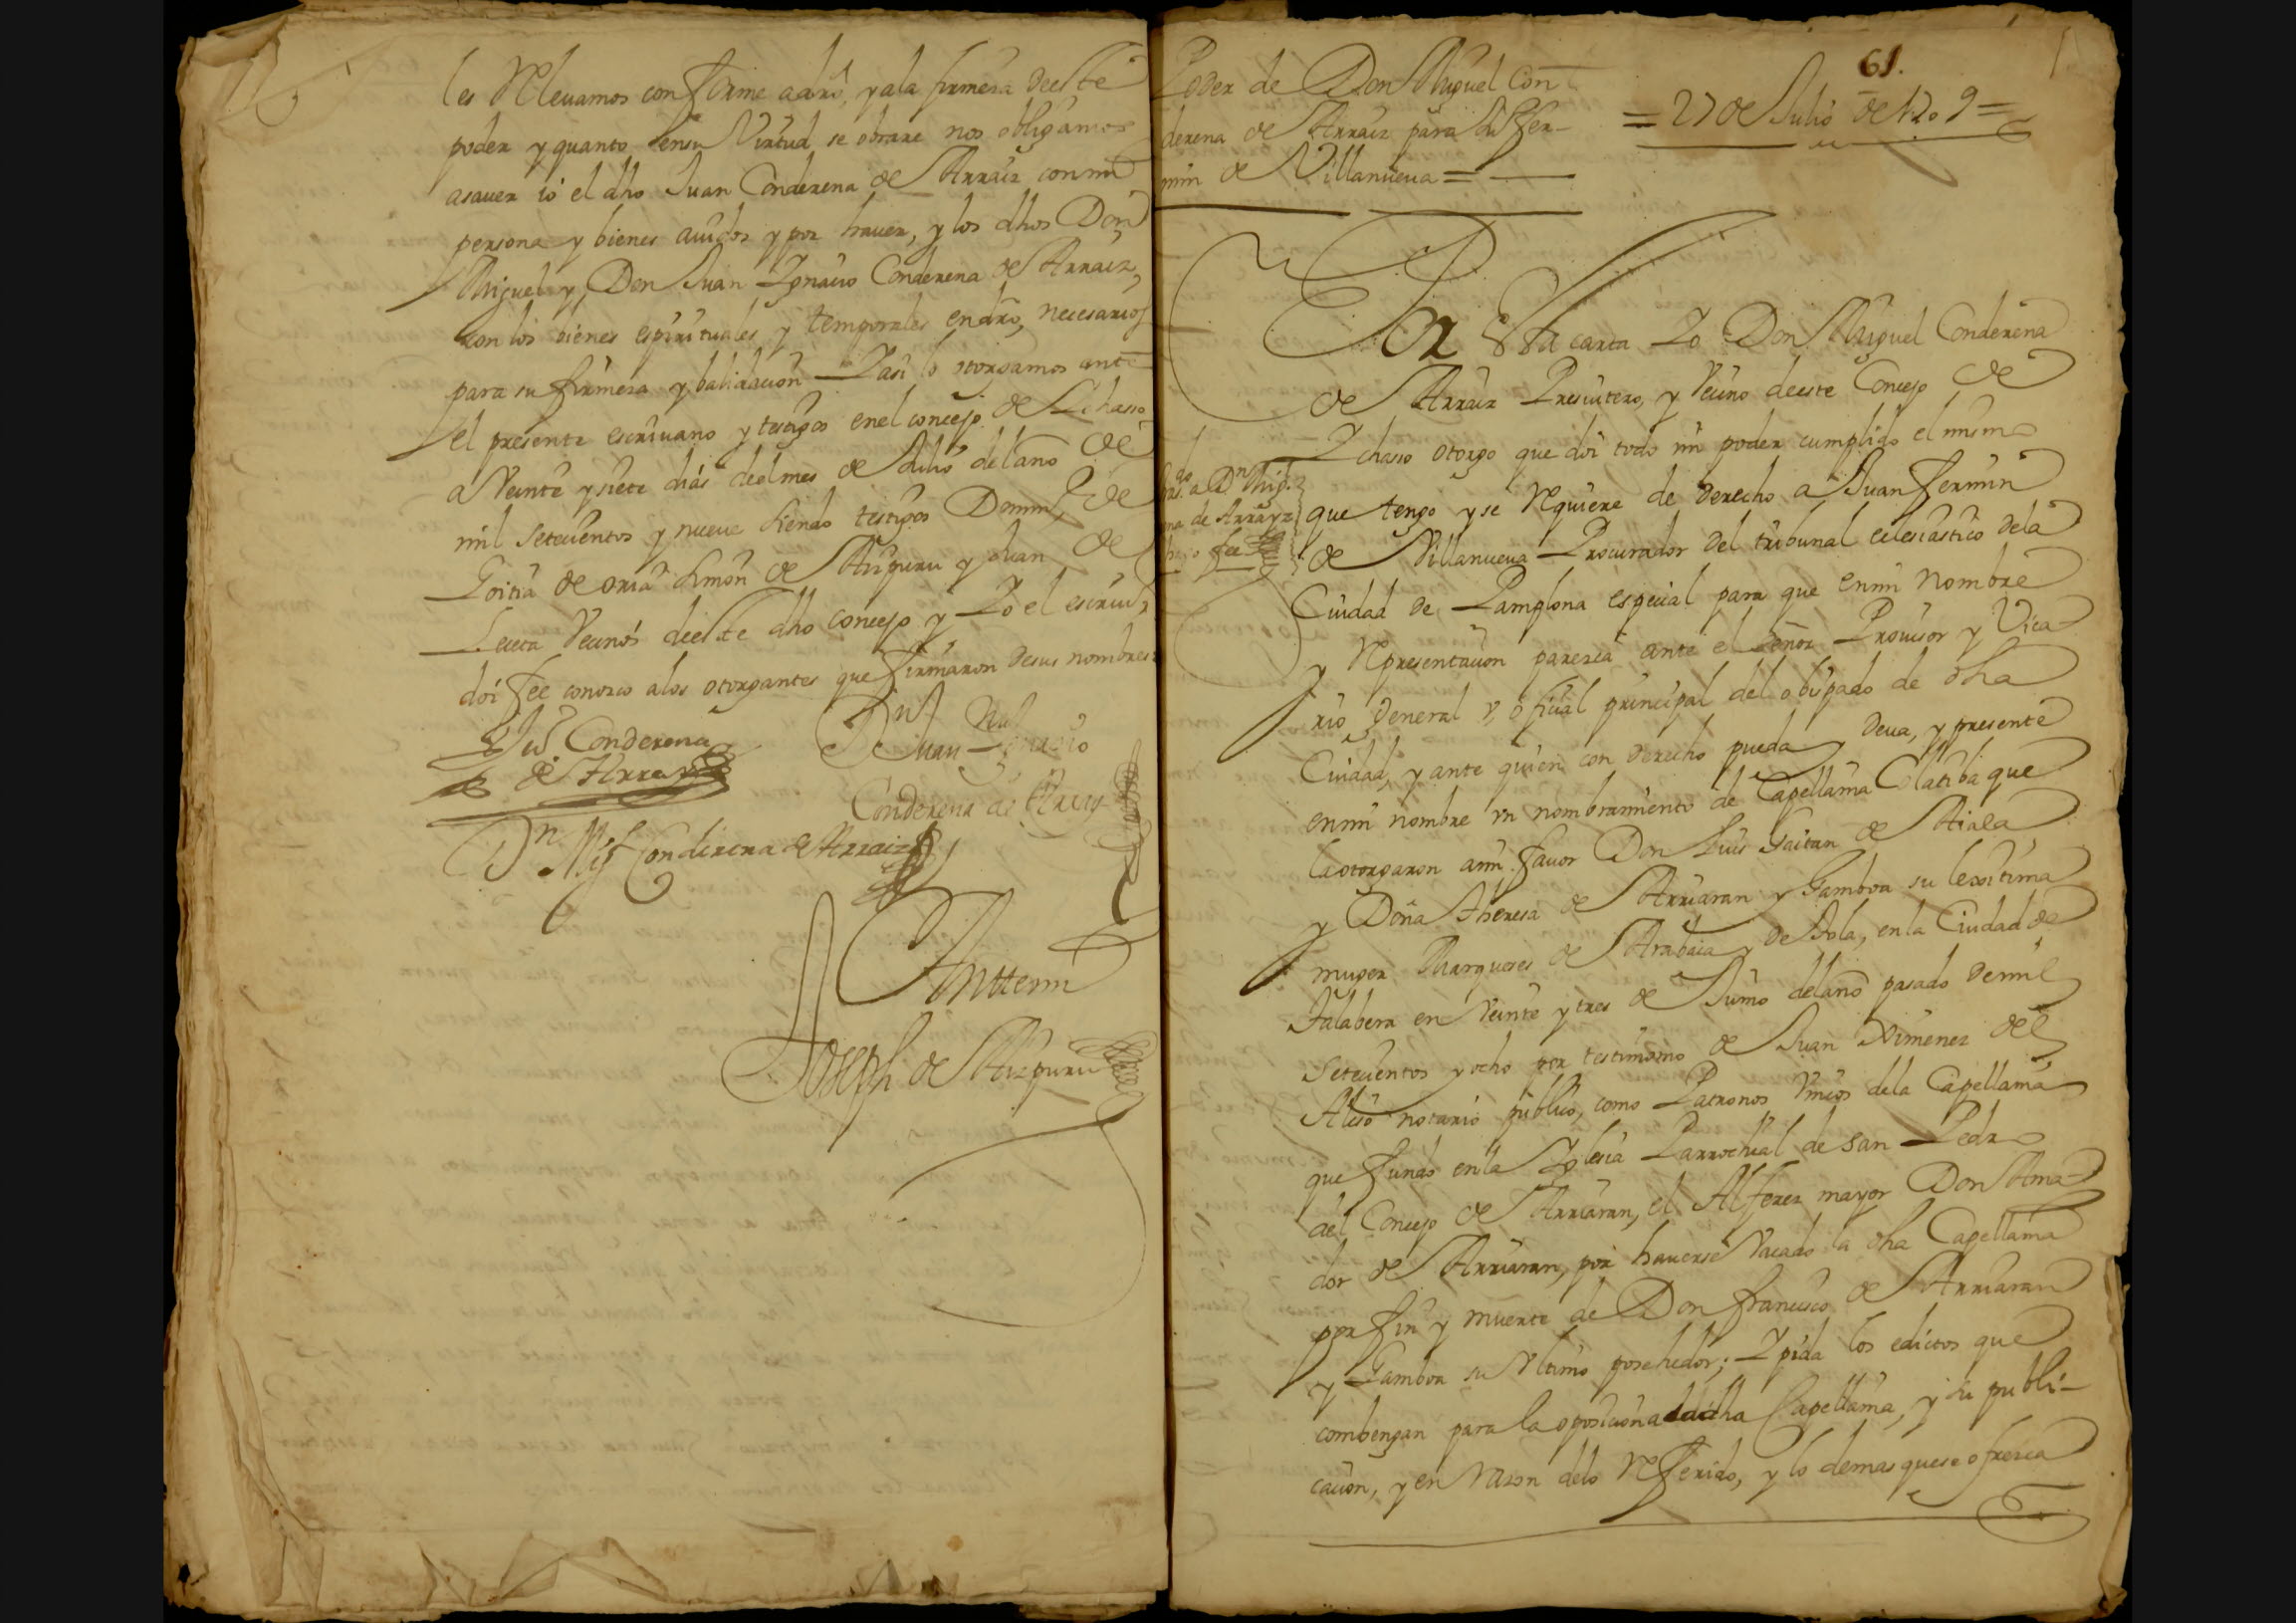 les Relevamos conforme a dr̃o, y ala firmeza deeste
poder y quanto ensu Virtud se obrare nos obligamos
asaver io el dho Juan Conderena de Arraiz con mi
persona y bienes avidos y por haver, y los dhos Don
Miguel y, Don Juan Ignacio Conderena de Arraiz,
con los vienes espirituales y temporales en dr̃o, necesarios
para su firmeza y balidacion Y asi lo otorgamos ante
el presente escrivano y testigos enel concejo de Ichasso
a Veinte y siete dias deel mes de Julio del año de
mil Setecientos y nueve siendo testigos Domin.º de
Goitia de oria Simon de Aizpuru y Juan de
Leceta Vecinos deeste dho concejo y Yo el escriv.º
doi fee conozco alos otorgantes que firmaron de sus nombres
Ju.º Conderena
de Arraiz
Dn Juan Ignacio
Conderena de Arraiz
Dn Migl Conderena de Arraiz
Anttemi
Joseph de Aizpuru
61.
Poder de Don Miguel Con
derena de Arraiz para Ju. Fer-
min de Villanueva =
= 27 de Julio de 1709 =
Por Esta carta Yo Don Miguel Conderena
de Arraiz Presvitero, y Vecino deeste Concejo de
Ychasso otorgo que doi todo mi poder cumplido el mismo
a Dn Mig.
na de Arrayz
fee
que tengo y se Requiere de derecho a Juan fermin
de Villanueva Procurador del tribunal eclesiastico dela
Ciudad de Pamplona especial para que enmi nombre
y Representacion parezca ante el señor Provisor y Vica-
rio General y, oficial principal del obispado de dha
Ciudad, y ante quien con derecho pueda y deva, y presente
enmi nombre un nombramiento de Capellania Colatiba que
la otorgaron ami favor Don Luis Gaitan de Aiala
y Doña Theresa de Arriaran y Gamboa su lexitima
muger Marqueses de Aravaca y de Sola, en la Ciudad de
Talabera en Veinte y tres de Junio del año pasado de mil
Setecientos y ocho por testimonio de Juan Ximenez del
Aliso notario publico, como Patronos Unicos dela Capellania
que fundo en la Iglesia Parrochial de san Pedro
del Concejo de Arriaran, el Alferez mayor Don Ama-
dor de Arriaran, por haverse Vacado la dha Capellania
por fin y muerte de Don francisco de Arriaran
y Gamboa su Ultimo posehedor; Y pida los edictos que
combengan para la oposicion a la dha Capellania, y su publi-
cacion, y en razon delo Referido, y lo demas que se ofrezca